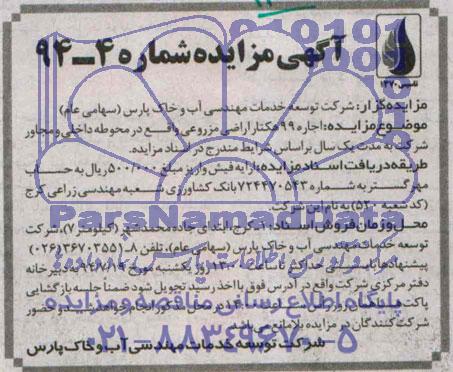 آگهی مزایده شماره ۴-۹۴
تاسیس ۱۳۷۰
مزایده‌گزار: شرکت توسعه خدمات مهندسی آب و خاک پارس (سهامی عام)
موضوع مزایده: اجاره ۹۹ هکتار اراضی مزروعی واقع در محوطه داخلی و مجاور
شرکت به مدت یک سال براساس شرایط مندرج در اسناد مزایده.
طریقه دریافت اسناد مزایده: ارایه فیش واریز مبلغ ۵۰۰/۰۰۰ ریال به حساب
مهرگستر به شماره ۷۲۴۴۷۰۵۴۳ بانک کشاورزی شعبه مهندسی زراعی کرج
(کد شعبه ۵۲۰) به نام این شرکت
محل و زمان فروش اسناد: کرج، ابتدای جاده محمدشهر (کیلومتر ۷)، شرکت
توسعه خدمات مهندسی آب و خاک پارس (سهامی عام)، تلفن ۸-۳۶۷۰۳۵۵۱(۰۲۶)
پیشنهادها بایستی حداکثر تا ساعت ۱۳:۰۰ روز یکشنبه مورخ به دبیرخانه
دفتر مرکزی شرکت واقع در آدرس فوق با اخذ رسید تحویل شود ضمنا جلسه بازگشایی
در محل مذکور انجام خواهد شد و حضور
شرکت کنندگان در مزایده بلامانع می باشد.
شرکت توسعه خدمات مهندسی آب و خاک پارس
ParsNamadData
پایگاه اطلاع رسانی مناقصه و مزایده
۰۲۱-۸۸۳۴۹۶۷۰-۵